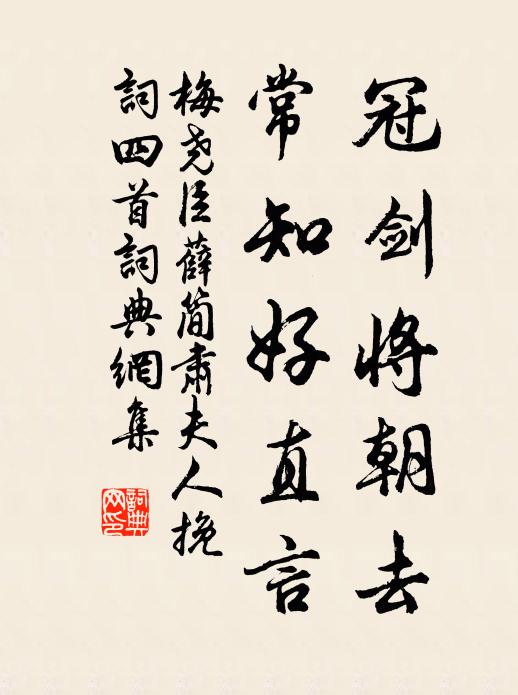 冠剑将朝去
常知好直言
梅尧臣薛简肃夫人挽
詞四首詞典網集
詞典网印